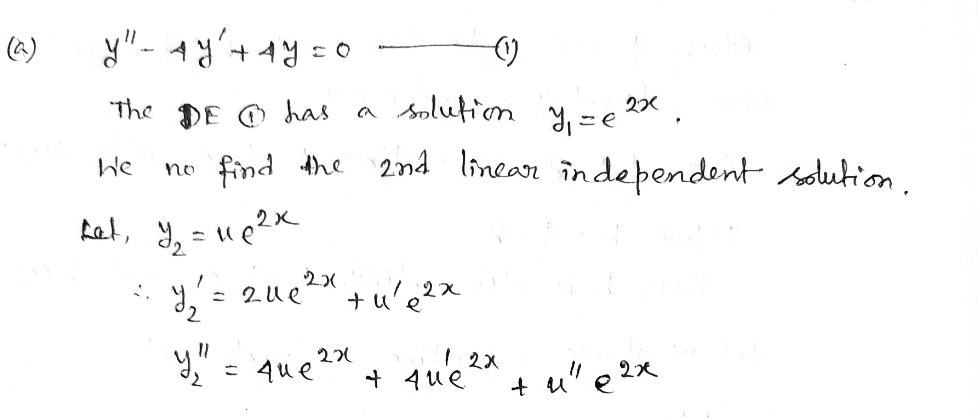 (a) y'' - 4y' + 4y = 0 ——— (1)
The DE (1) has a solution y₁ = e^{2x}.
We no find the 2nd linear independent solution.
Let, y₂ = ue^{2x}
∴ y₂' = 2ue^{2x} + u'e^{2x}
y₂'' = 4ue^{2x} + 4u'e^{2x} + u''e^{2x}